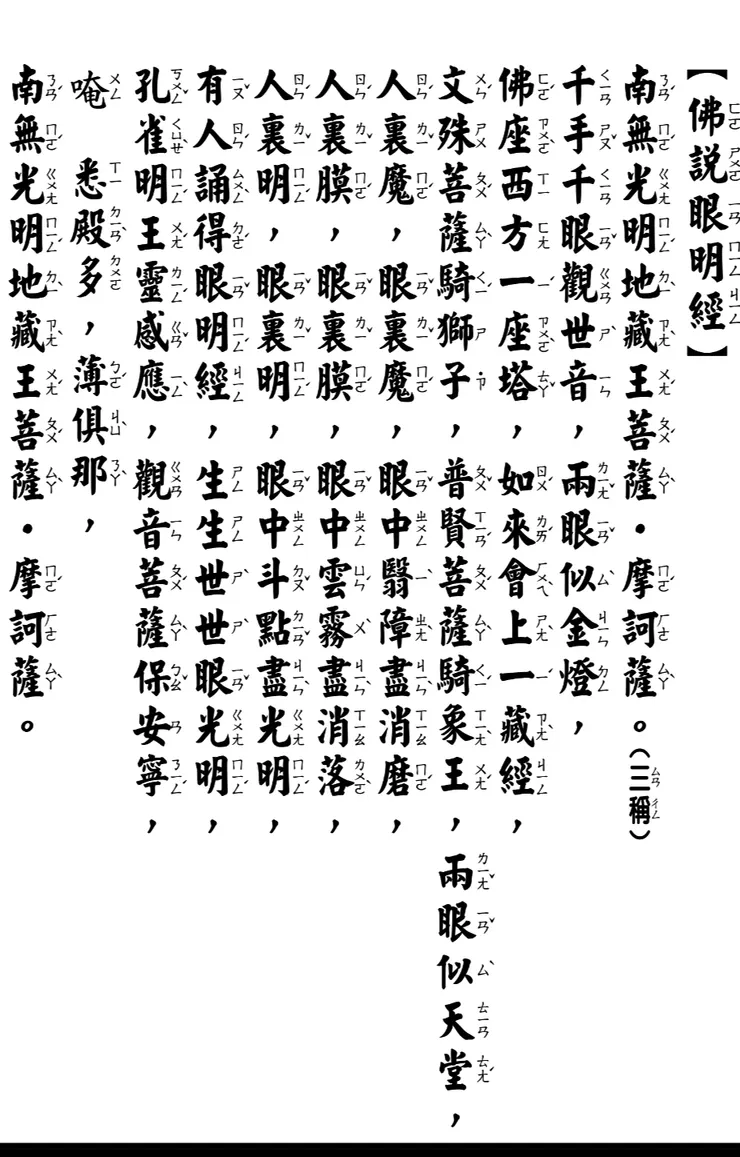 【佛說眼明經】
南無光明地藏王菩薩・摩訶薩。(三稱)
千手千眼觀世音，兩眼似金燈，
佛座西方一座塔，如來會上一藏經，
文殊菩薩騎獅子，普賢菩薩騎象王，兩眼似天堂，
人裏魔，眼裏魔，眼中翳障盡消磨，
人裏膜，眼裏膜，眼中雲霧盡消落，
人裏明，眼裏明，眼中斗點盡光明，
有人誦得眼明經，生生世世眼光明，
孔雀明王靈感應，觀音菩薩保安寧，
唵　悉殿多，薄俱那，
南無光明地藏王菩薩・摩訶薩。